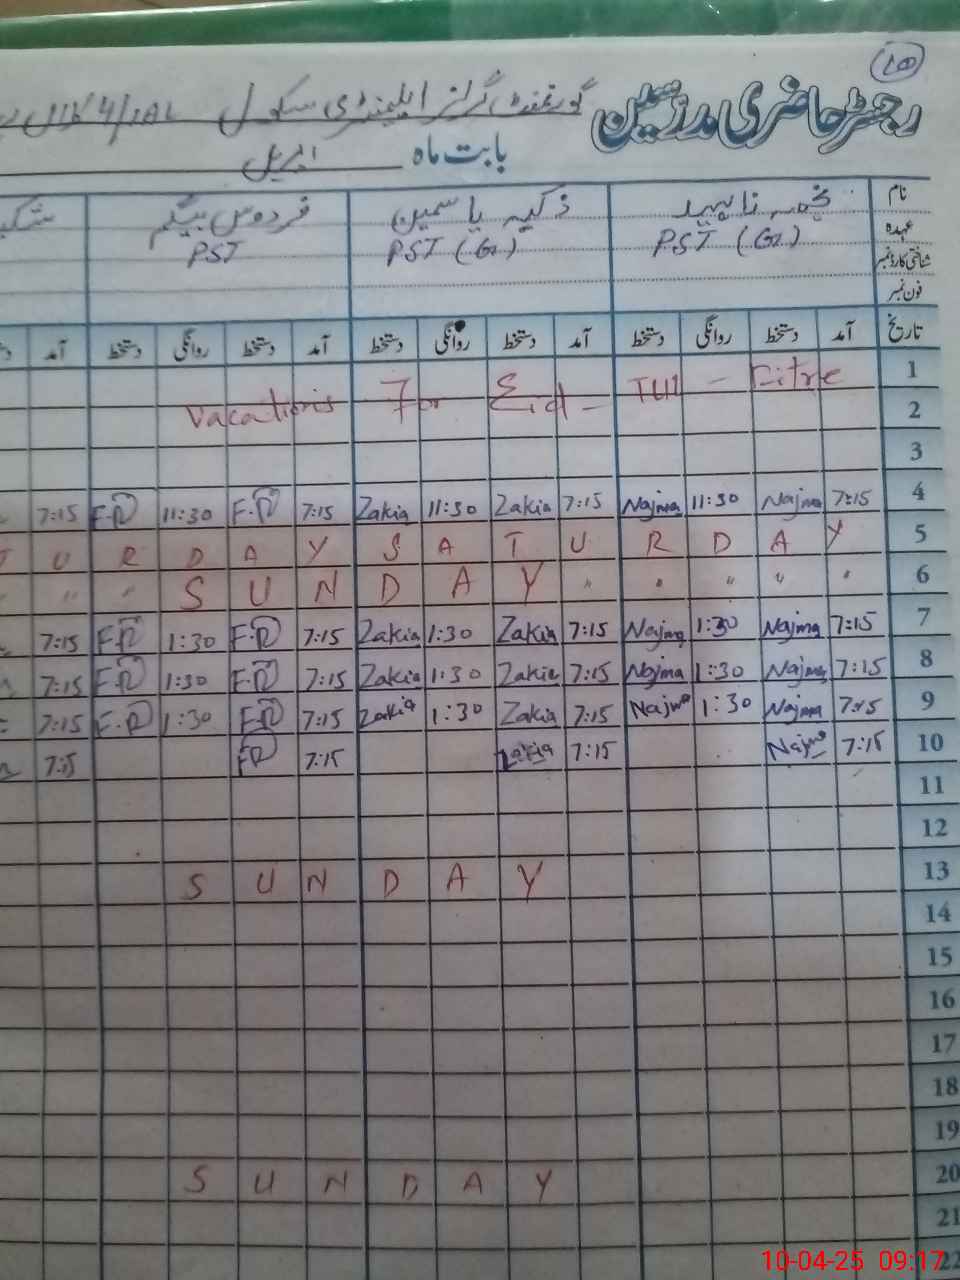 رجسٹر حاضری مدرسین گورنمنٹ گرلز ایلیمنٹری سکول
بابت ماہ اپریل
نام نجمہ ناہید ذکیہ یاسمین فردوس بیگم
عہدہ PST (G) PST (G) PST
شناختی کارڈ نمبر
فون نمبر
تاریخ آمد دستخط روانگی دستخط آمد دستخط روانگی دستخط آمد دستخط روانگی دستخط آمد
1
Vacations For Eid - Ul - Fitre
2
3
7:15 F.R 11:30 F.R 7:15 Zakia 11:30 Zakia 7:15 Najma 11:30 Najma 7:15 4
U R D A Y S A T U R D A Y 5
" " S U N D A Y " " " " " 6
7:15 F.R 1:30 F.R 7:15 Zakia 1:30 Zakia 7:15 Najma 1:30 Najma 7:15 7
7:15 F.R 1:30 F.R 7:15 Zakia 1:30 Zakia 7:15 Najma 1:30 Najma 7:15 8
7:15 F.R 1:30 F.R 7:15 Zakia 1:30 Zakia 7:15 Najma 1:30 Najma 7:15 9
7:15 FR 7:15 Zakia 7:15 Najma 7:15 10
11
12
S U N D A Y 13
14
15
16
17
18
19
S U N D A Y 20
21
22
10-04-25 09:17